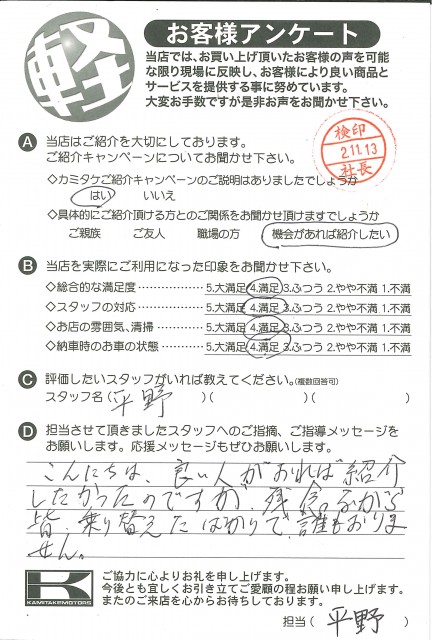 軽
お客様アンケート
当店では、お買い上げ頂いたお客様の声を可能
な限り現場に反映し、お客様により良い商品と
サービスを提供する事に努めています。
大変お手数ですが是非お声をお聞かせ下さい。
A 当店はご紹介を大切にしております。
ご紹介キャンペーンについてお聞かせ下さい。
検印
2.11.13
社長
◇カミタケご紹介キャンペーンのご説明はありましたでしょうか
はい いいえ
◇具体的にご紹介頂ける方とのご関係をお聞かせ頂けますでしょうか
ご親族 ご友人 職場の方 機会があれば紹介したい
B 当店を実際にご利用になった印象をお聞かせ下さい。
◇総合的な満足度 5.大満足 4.満足 3.ふつう 2.やや不満 1.不満
◇スタッフの対応 5.大満足 4.満足 3.ふつう 2.やや不満 1.不満
◇お店の雰囲気、清掃 5.大満足 4.満足 3.ふつう 2.やや不満 1.不満
◇納車時のお車の状態 5.大満足 4.満足 3.ふつう 2.やや不満 1.不満
C 評価したいスタッフがいれば教えてください。(複数回答可)
スタッフ名( 平野 )( )( )
D 担当させて頂きましたスタッフへのご指摘、ご指導メッセージを
お願いします。応援メッセージもぜひお願いします。
こんにちは、良い人がおれば紹介
したかったのですが、残念ながら
皆、乗り替えたばかりで、誰もおりま
せん。
K
KAMITAKEMOTORS
ご協力に心よりお礼を申し上げます。
今後とも宜しくお引き立てご愛顧の程お願い申し上げます。
またのご来店を心からお待ちしております。
担当( 平野 )